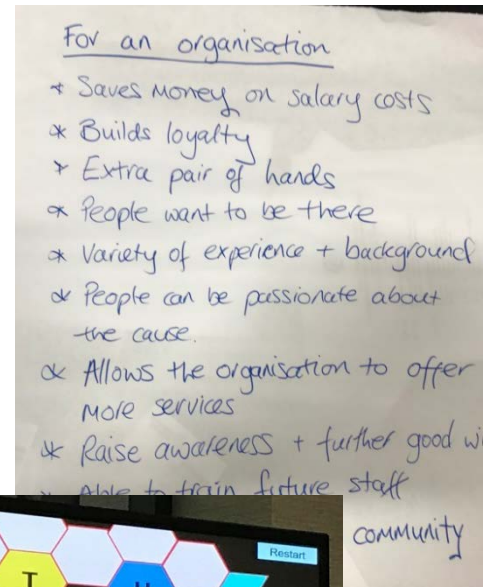 For an organisation
* Saves money on salary costs
* Builds loyalty
* Extra pair of hands
* People want to be there
* Variety of experience + background
* People can be passionate about
the cause.
* Allows the organisation to offer
more services
* Raise awareness + further good
* Able to train future staff
community
Restart
I